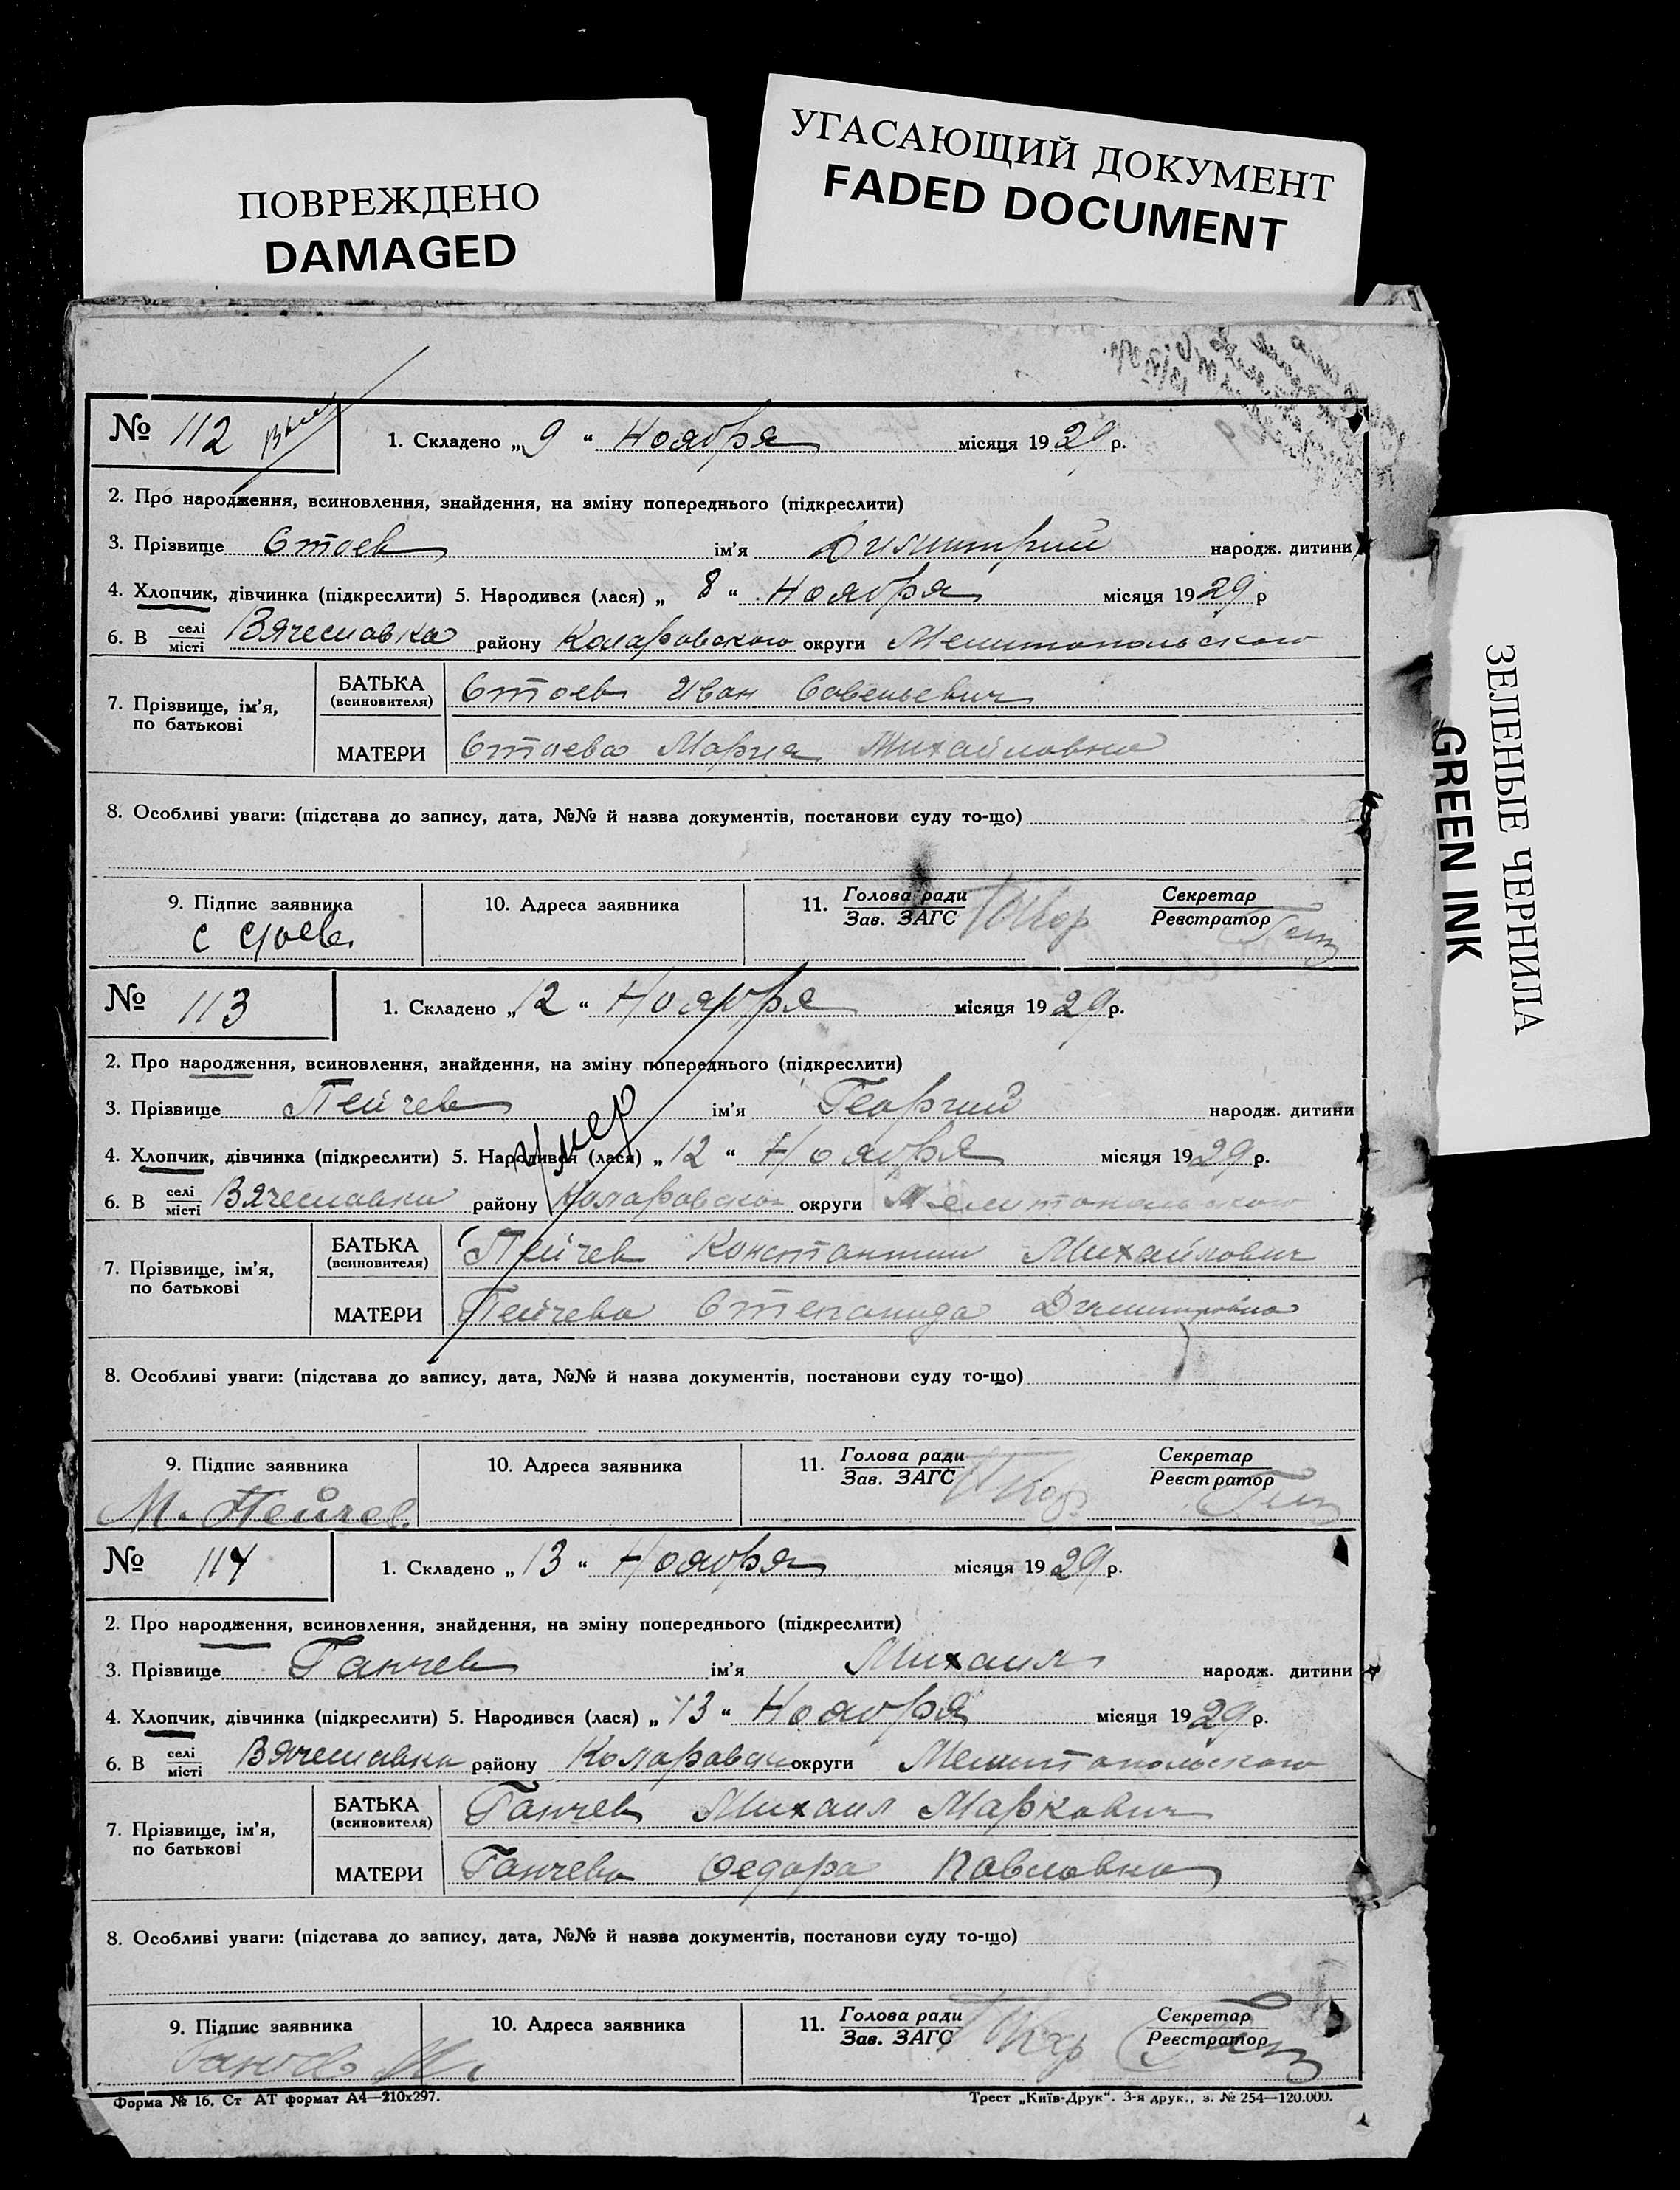 ПОВРЕЖДЕНО
DAMAGED
УГАСАЮЩИЙ ДОКУМЕНТ
FADED DOCUMENT
ЗЕЛЕНЫЕ ЧЕРНИЛА
GREEN INK
№ 112 1. Складено „9“ Ноября місяця 1929 р.
2. Про народження, всиновлення, знайдення, на зміну попереднього (підкреслити)
3. Прізвище Стоев ім'я Димитрий народж. дитини
4. Хлопчик, дівчинка (підкреслити) 5. Народився (лася) „8“ Ноября місяця 1929 р
6. В селі місті Вячеславка району Коларовского округи Мелитопольского
7. Прізвище, ім'я, по батькові
БАТЬКА (всиновителя) Стоев Иван Савельевич
МАТЕРИ Стоева Мария Михайловна
8. Особливі уваги: (підстава до запису, дата, №№ й назва документів, постанови суду то-що)
9. Підпис заявника 10. Адреса заявника 11. Голова ради Зав. ЗАГС Секретар Реєстратор
№ 113 1. Складено „12“ Ноября місяця 1929 р.
2. Про народження, всиновлення, знайдення, на зміну попереднього (підкреслити)
3. Прізвище Пейчев ім'я Георгий народж. дитини
Умер
4. Хлопчик, дівчинка (підкреслити) 5. Народився (лася) „12“ Ноября місяця 1929 р.
6. В селі місті Вячеславка району Коларовско округи Мелитопольского
7. Прізвище, ім'я, по батькові
БАТЬКА (всиновителя) Пейчев Константин Михайлович
МАТЕРИ Пейчева Степанида Димитровна
8. Особливі уваги: (підстава до запису, дата, №№ й назва документів, постанови суду то-що)
9. Підпис заявника 10. Адреса заявника 11. Голова ради Зав. ЗАГС Секретар Реєстратор
М. Пейчев.
№ 114 1. Складено „13“ Ноября місяця 1929 р.
2. Про народження, всиновлення, знайдення, на зміну попереднього (підкреслити)
3. Прізвище Ганчев ім'я Михаил народж. дитини
4. Хлопчик, дівчинка (підкреслити) 5. Народився (лася) „13“ Ноября місяця 1929 р.
6. В селі місті Вячеславка району Коларовск округи Мелитопольского
7. Прізвище, ім'я, по батькові
БАТЬКА (всиновителя) Ганчев Михаил Маркович
МАТЕРИ Ганчева Федора Павловна
8. Особливі уваги: (підстава до запису, дата, №№ й назва документів, постанови суду то-що)
9. Підпис заявника 10. Адреса заявника 11. Голова ради Зав. ЗАГС Секретар Реєстратор
Форма № 16. Ст АТ формат А4—210х297. Трест „Київ-Друк“. 3-я друк., з. № 254—120.000.